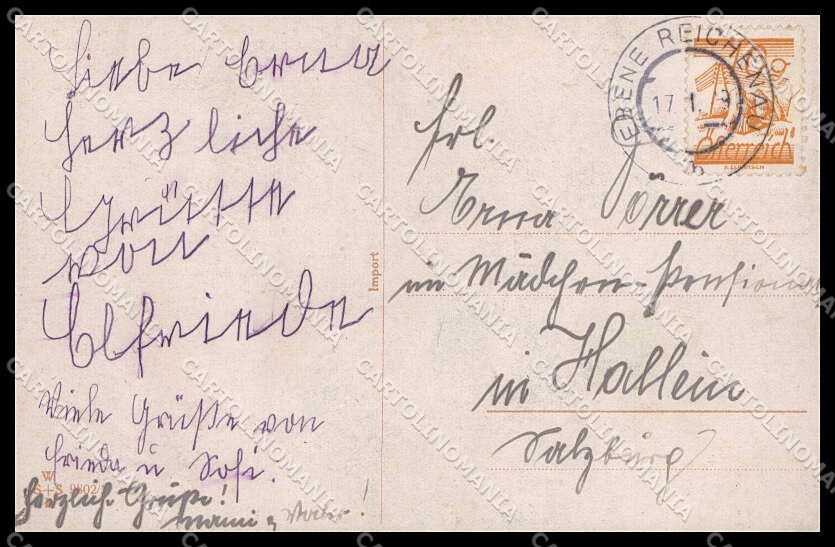 Liebe Erna
herzliche
Grüsse
von
Elfriede
Viele Grüße von
Frieda u Sofi.
Herzliche Grüße!
Mami u Vater!
W
S+S 9802/
Import
EBENE REICHENAU
17. 1.
Österreich
Frl.
Erna Dörrer
im Mädchen-Pensionat
in Hallein
Salzburg
CARTOLINOMANIA